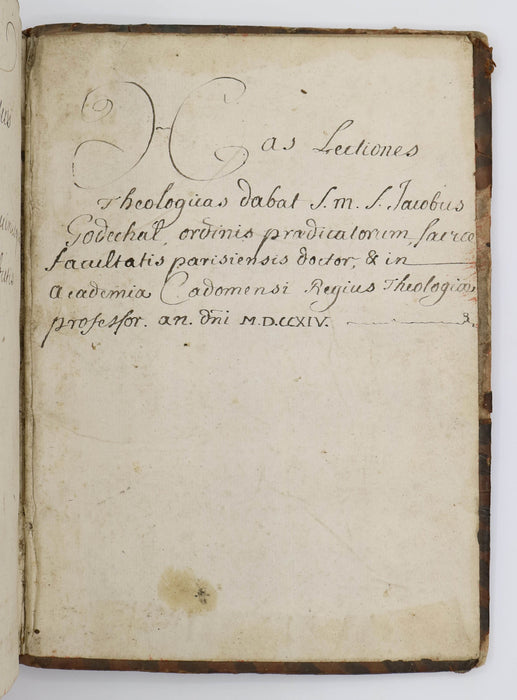 Has Lectiones
Theologicas dabat S. m. S. Jacobus
Godechal, ordinis prædicatorum, sacræ
facultatis parisiensis doctor, & in
academia Cadomensi Regius Theologiæ
professor. an. dñi M.D.CCXIV.